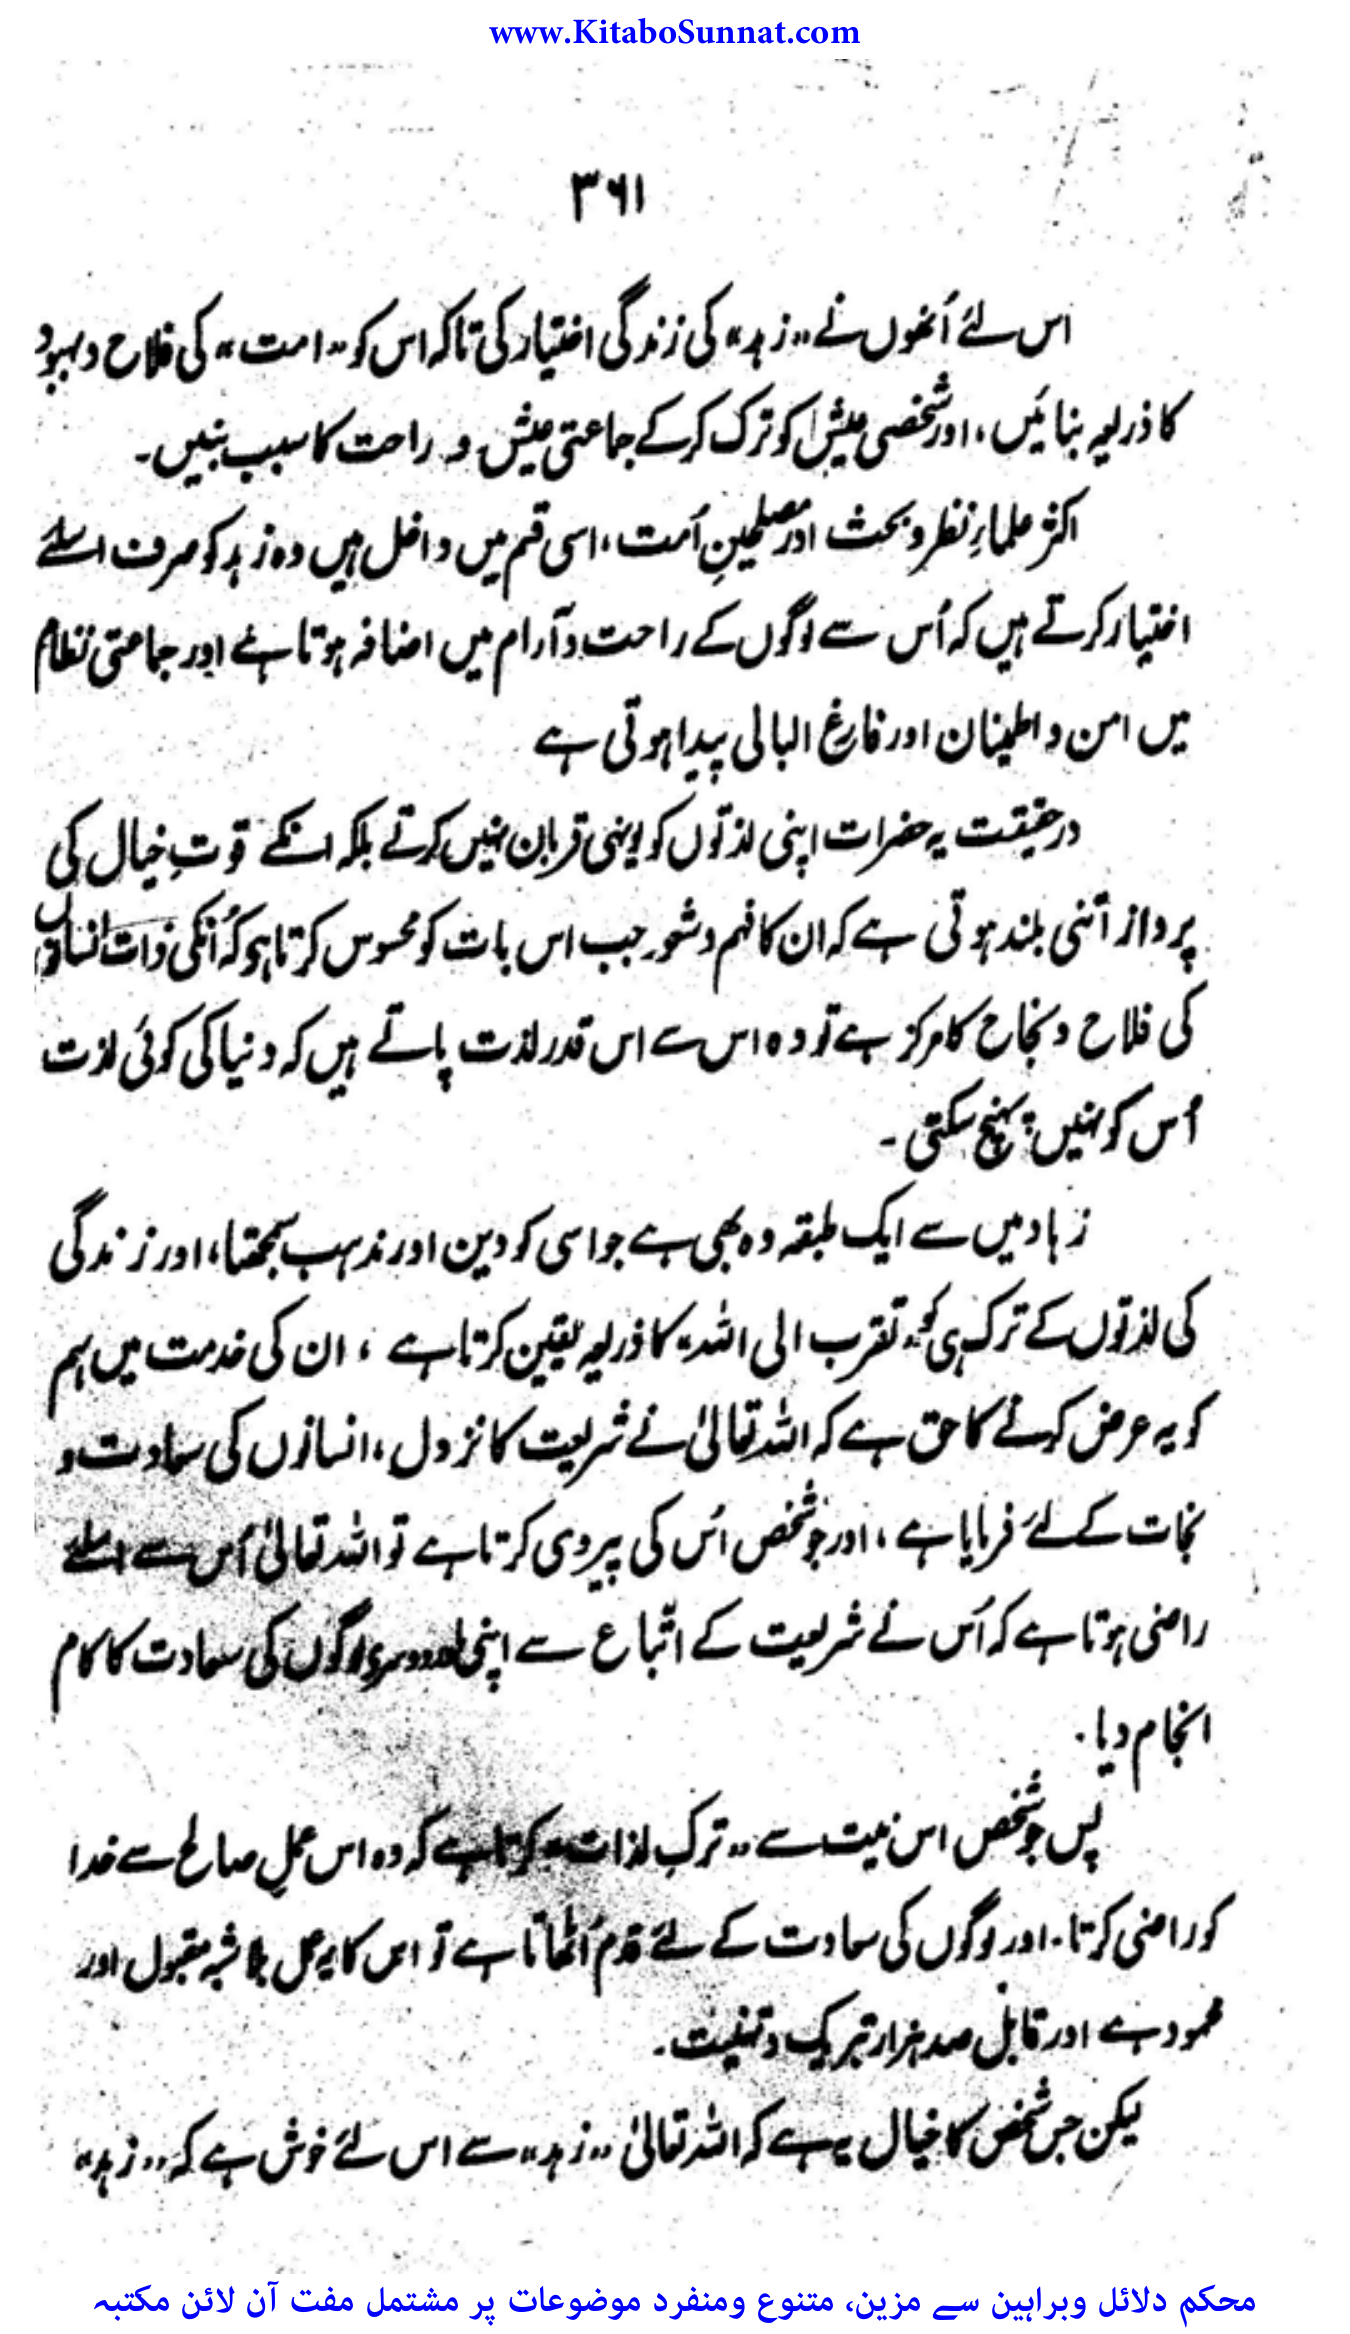 www.KitaboSunnat.com
۳۶۱
اس لئے اُنھوں نے "زہد" کی زندگی اختیار کی تاکہ اس کو "امت" کی فلاح و بہبود
کا ذریعہ بنائیں، اور شخصی عیش کو ترک کرکے جماعتی عیش و راحت کا سبب بنیں۔
اکثر علماءِ نظر و بحث اور مصلحینِ اُمت، اسی قسم میں داخل ہیں وہ زہد کو صرف اسلئے
اختیار کرتے ہیں کہ اُس سے لوگوں کے راحت و آرام میں اضافہ ہوتا ہے اور جماعتی نظام
میں امن و اطمینان اور فارغ البالی پیدا ہوتی ہے
درحقیقت یہ حضرات اپنی لذتوں کو یونہی قربان نہیں کرتے بلکہ انکے قوتِ خیال کی
پرواز اتنی بلند ہوتی ہے کہ ان کا فہم و شعور جب اس بات کو محسوس کرتا ہو کہ اُنکی ذات انسانوں
کی فلاح و نجاح کا مرکز ہے تو وہ اس سے اس قدر لذت پاتے ہیں کہ دنیا کی کوئی لذت
اُس کو نہیں پہنچ سکتی ۔
زہاد میں سے ایک طبقہ وہ بھی ہے جو اسی کو دین اور مذہب سمجھتا، اور زندگی
کی لذتوں کے ترک ہی کو "تقرب الی اللہ" کا ذریعہ یقین کرتا ہے ، ان کی خدمت میں ہم
کو یہ عرض کرنے کا حق ہے کہ اللہ تعالیٰ نے شریعت کا نزول، انسانوں کی سعادت و
نجات کے لئے فرمایا ہے، اور جو شخص اُس کی پیروی کرتا ہے تو اللہ تعالیٰ اُس سے اسلئے
راضی ہوتا ہے کہ اُس نے شریعت کے اتباع سے اپنی اور دوسرے لوگوں کی سعادت کا کام
انجام دیا ۔
پس جو شخص اس نیت سے "ترکِ لذات" کرتا ہے کہ وہ اس عملِ صالح سے خدا
کو راضی کرتا۔ اور لوگوں کی سعادت کے لئے قدم اُٹھاتا ہے تو اس کا یہ عمل بلاشبہ مقبول اور
محمود ہے اور قابلِ صد ہزار تبریک و تہنیت۔
لیکن جس شخص کا خیال یہ ہے کہ اللہ تعالیٰ "زہد" سے اس لئے خوش ہے کہ "زہد"
محکم دلائل وبراہین سے مزین، متنوع ومنفرد موضوعات پر مشتمل مفت آن لائن مکتبہ